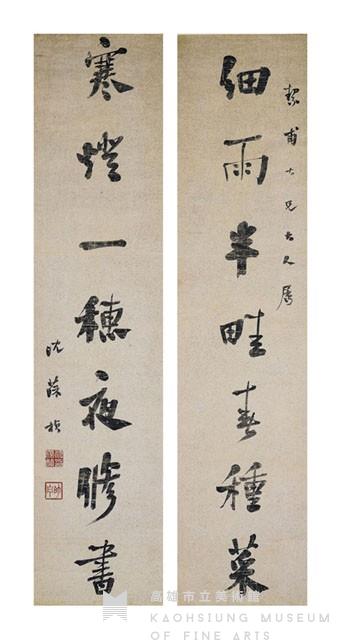 絜甫大兄大人屬
細雨半畦春種菜
寒燈一穗夜謄書
沈葆楨
高雄市立美術館
KAOHSIUNG MUSEUM
OF FINE ARTS